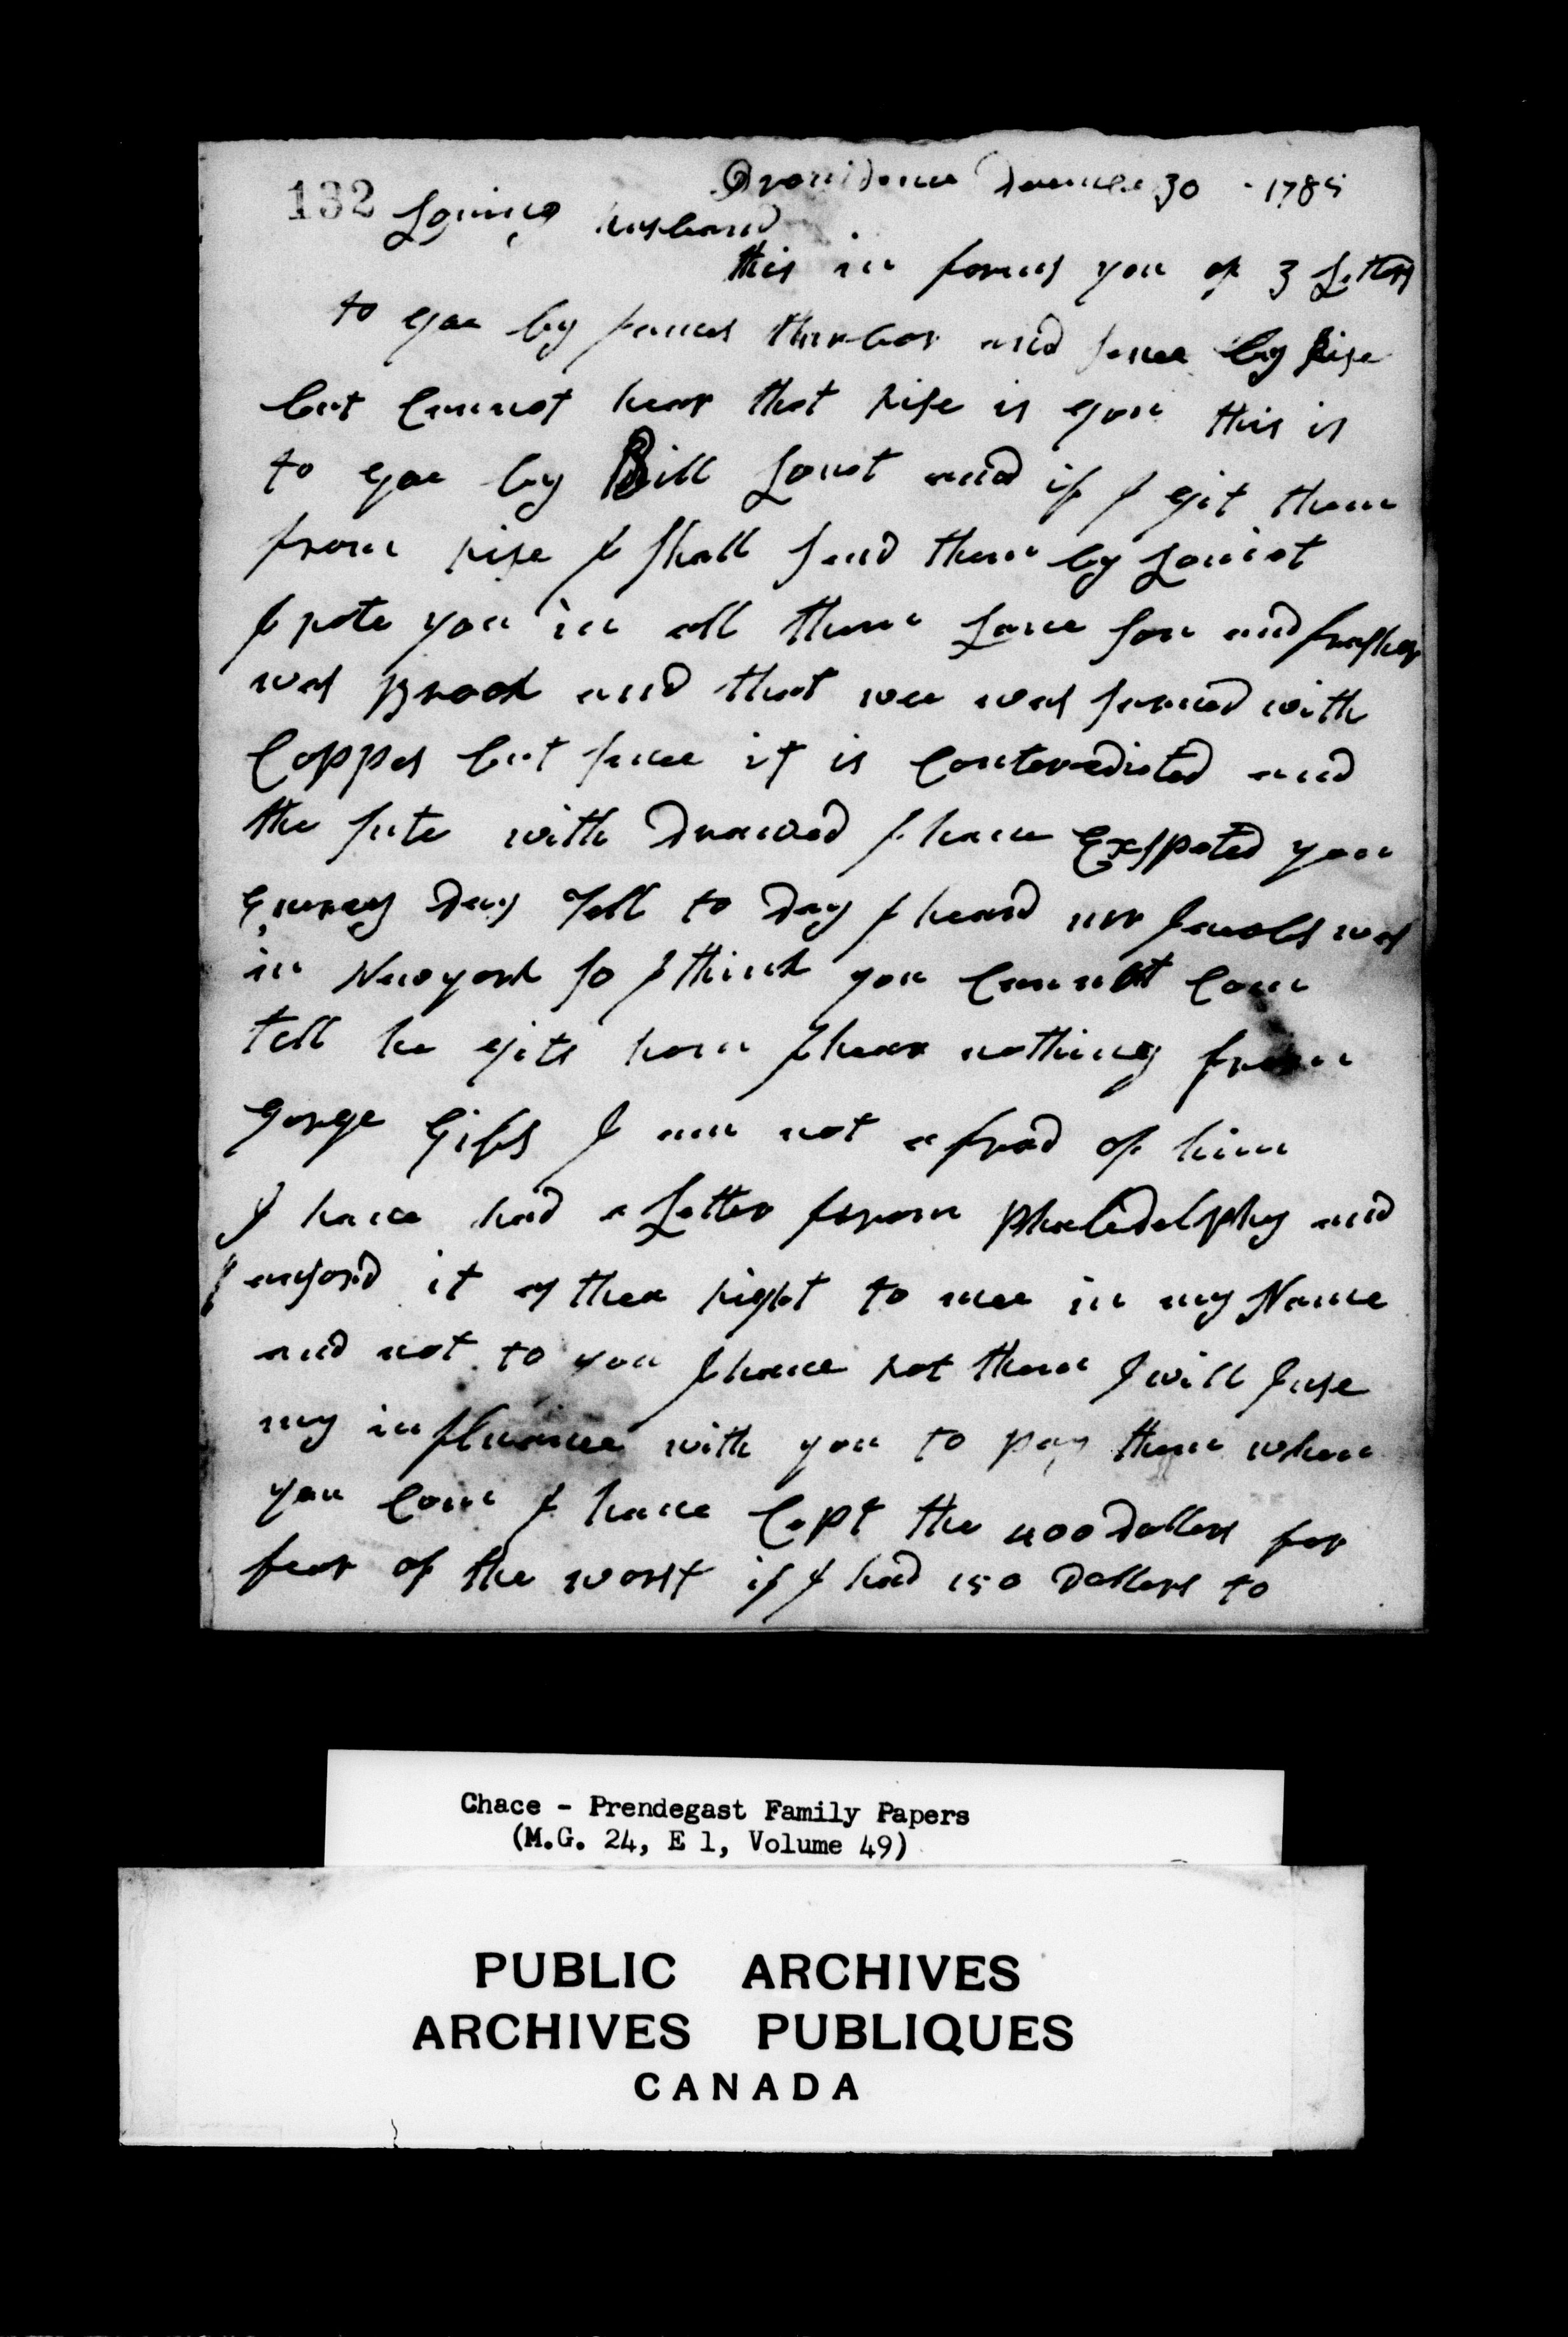 Providence December 30 - 1785
132 Loving husband
this in forms you of 3 Letters
to you by James Thurbor and sence by Rise
but Cannot hear that Rise is gon this is
to you by Bill and if I git them
from Rise I Shall Send them by
I rote you in all them Son and
was and that wee was with
Coppes but sence it is Conteradicted and
the sute with Drawed I have Exspeted you
Every Day Tell to Day I heard mr was
in Newyork so I think you Cannot Com
tell he gits hom I hear nothing from
Gorge Gibs I am not a frad of him
I have had a Letter from Pheledelphy and
it as thea right to mee in my Name
and not to you I have rot them I will Iuse
my influence with you to pay them when
you Com I have Cept the 400 Dollers for
fear of the worst if I had 150 Dollers to
Chace - Prendegast Family Papers
(M.G. 24, E 1, Volume 49)
PUBLIC ARCHIVES
ARCHIVES PUBLIQUES
CANADA